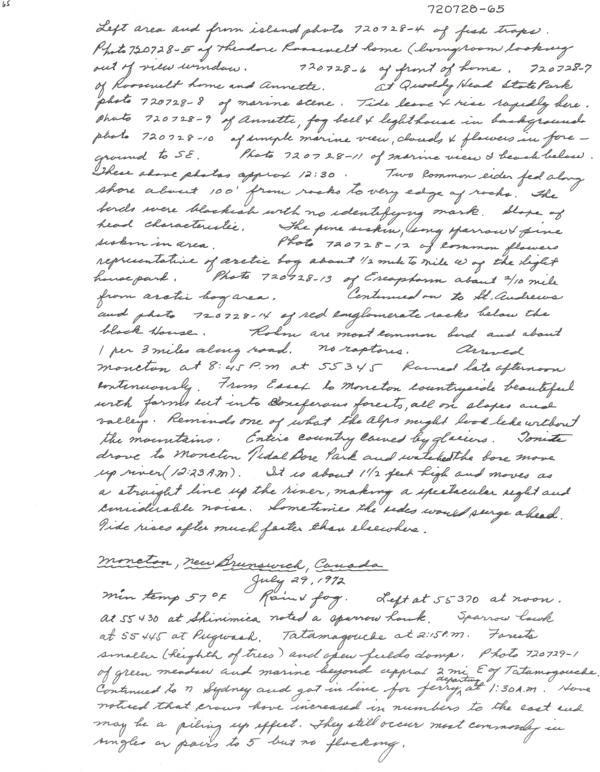 65
720728-65
Left area and from island photo 720728-4 of fish traps.
Photo 720728-5 of Theodore Roosevelt home (livingroom looking
out of view window. 720728-6 of front of home. 720728-7
of Roosevelt home and Annette. At Quoddy Head State Park
photo 720728-8 of marine scene. Tide leave & rise rapidly here.
Photo 720728-9 of Annette, fog bell & lighthouse in background
photo 720728-10 of simple marine view, clouds & flowers in fore-
ground to SE. Photo 720728-11 of marine view & beach below.
These above photos approx 12:30. Two Common eider fed along
shore about 100' from rocks to very edge of rocks. The
birds were blackish with no identifying mark. Slope of
head characteristic. The pine siskin, song sparrow & pine
siskin in area. Photo 720728-12 of common flowers
representative of arctic bog about 1/2 mile to mile W of the light
house park. Photo 720728-13 of about 2/10 mile
from arctic bog area. Continued on to St. Andrews
and photo 720728-14 of red conglomerate rocks below the
block House. Robin are most common bird and about
1 per 3 miles along road. No raptores. Arrived
Moncton at 8:45 P.M at 55345 Rained late afternoon
continuously. From Essex to Moncton countryside beautiful
with farms cut into Coniferous forests, all on slopes and
valleys. Reminds one of what the Alps might look like without
the mountains. Entire country carved by glaciers. Tonite
drove to Moncton Tidal Bore Park and watched the bore move
up river (12:23 AM). It is about 1 1/2 feet high and moves as
a straight line up the river, making a spectacular sight and
considerable noise. Sometimes the sides would surge ahead.
Tide rises after much faster than elsewhere.
Moncton, New Brunswick, Canada
July 29, 1972
Min temp 57°F Rain & fog. Left at 55370 at noon.
At 55430 at Shinimica noted a sparrow hawk. Sparrow hawk
at 55445 at Pugwash. Tatamagouche at 2:15 P.M. Forests
smaller (heighth of trees) and open fields damp. Photo 720729-1
of green meadow and marine beyond approx 2 mi E of Tatamagouche.
Continued to N Sydney and got in line for ferry departure at 1:30 AM. Have
noticed that crows have increased in numbers to the east and
may be a piling up effect. They still occur most commonly in
singles or pairs to 5 but no flocking.